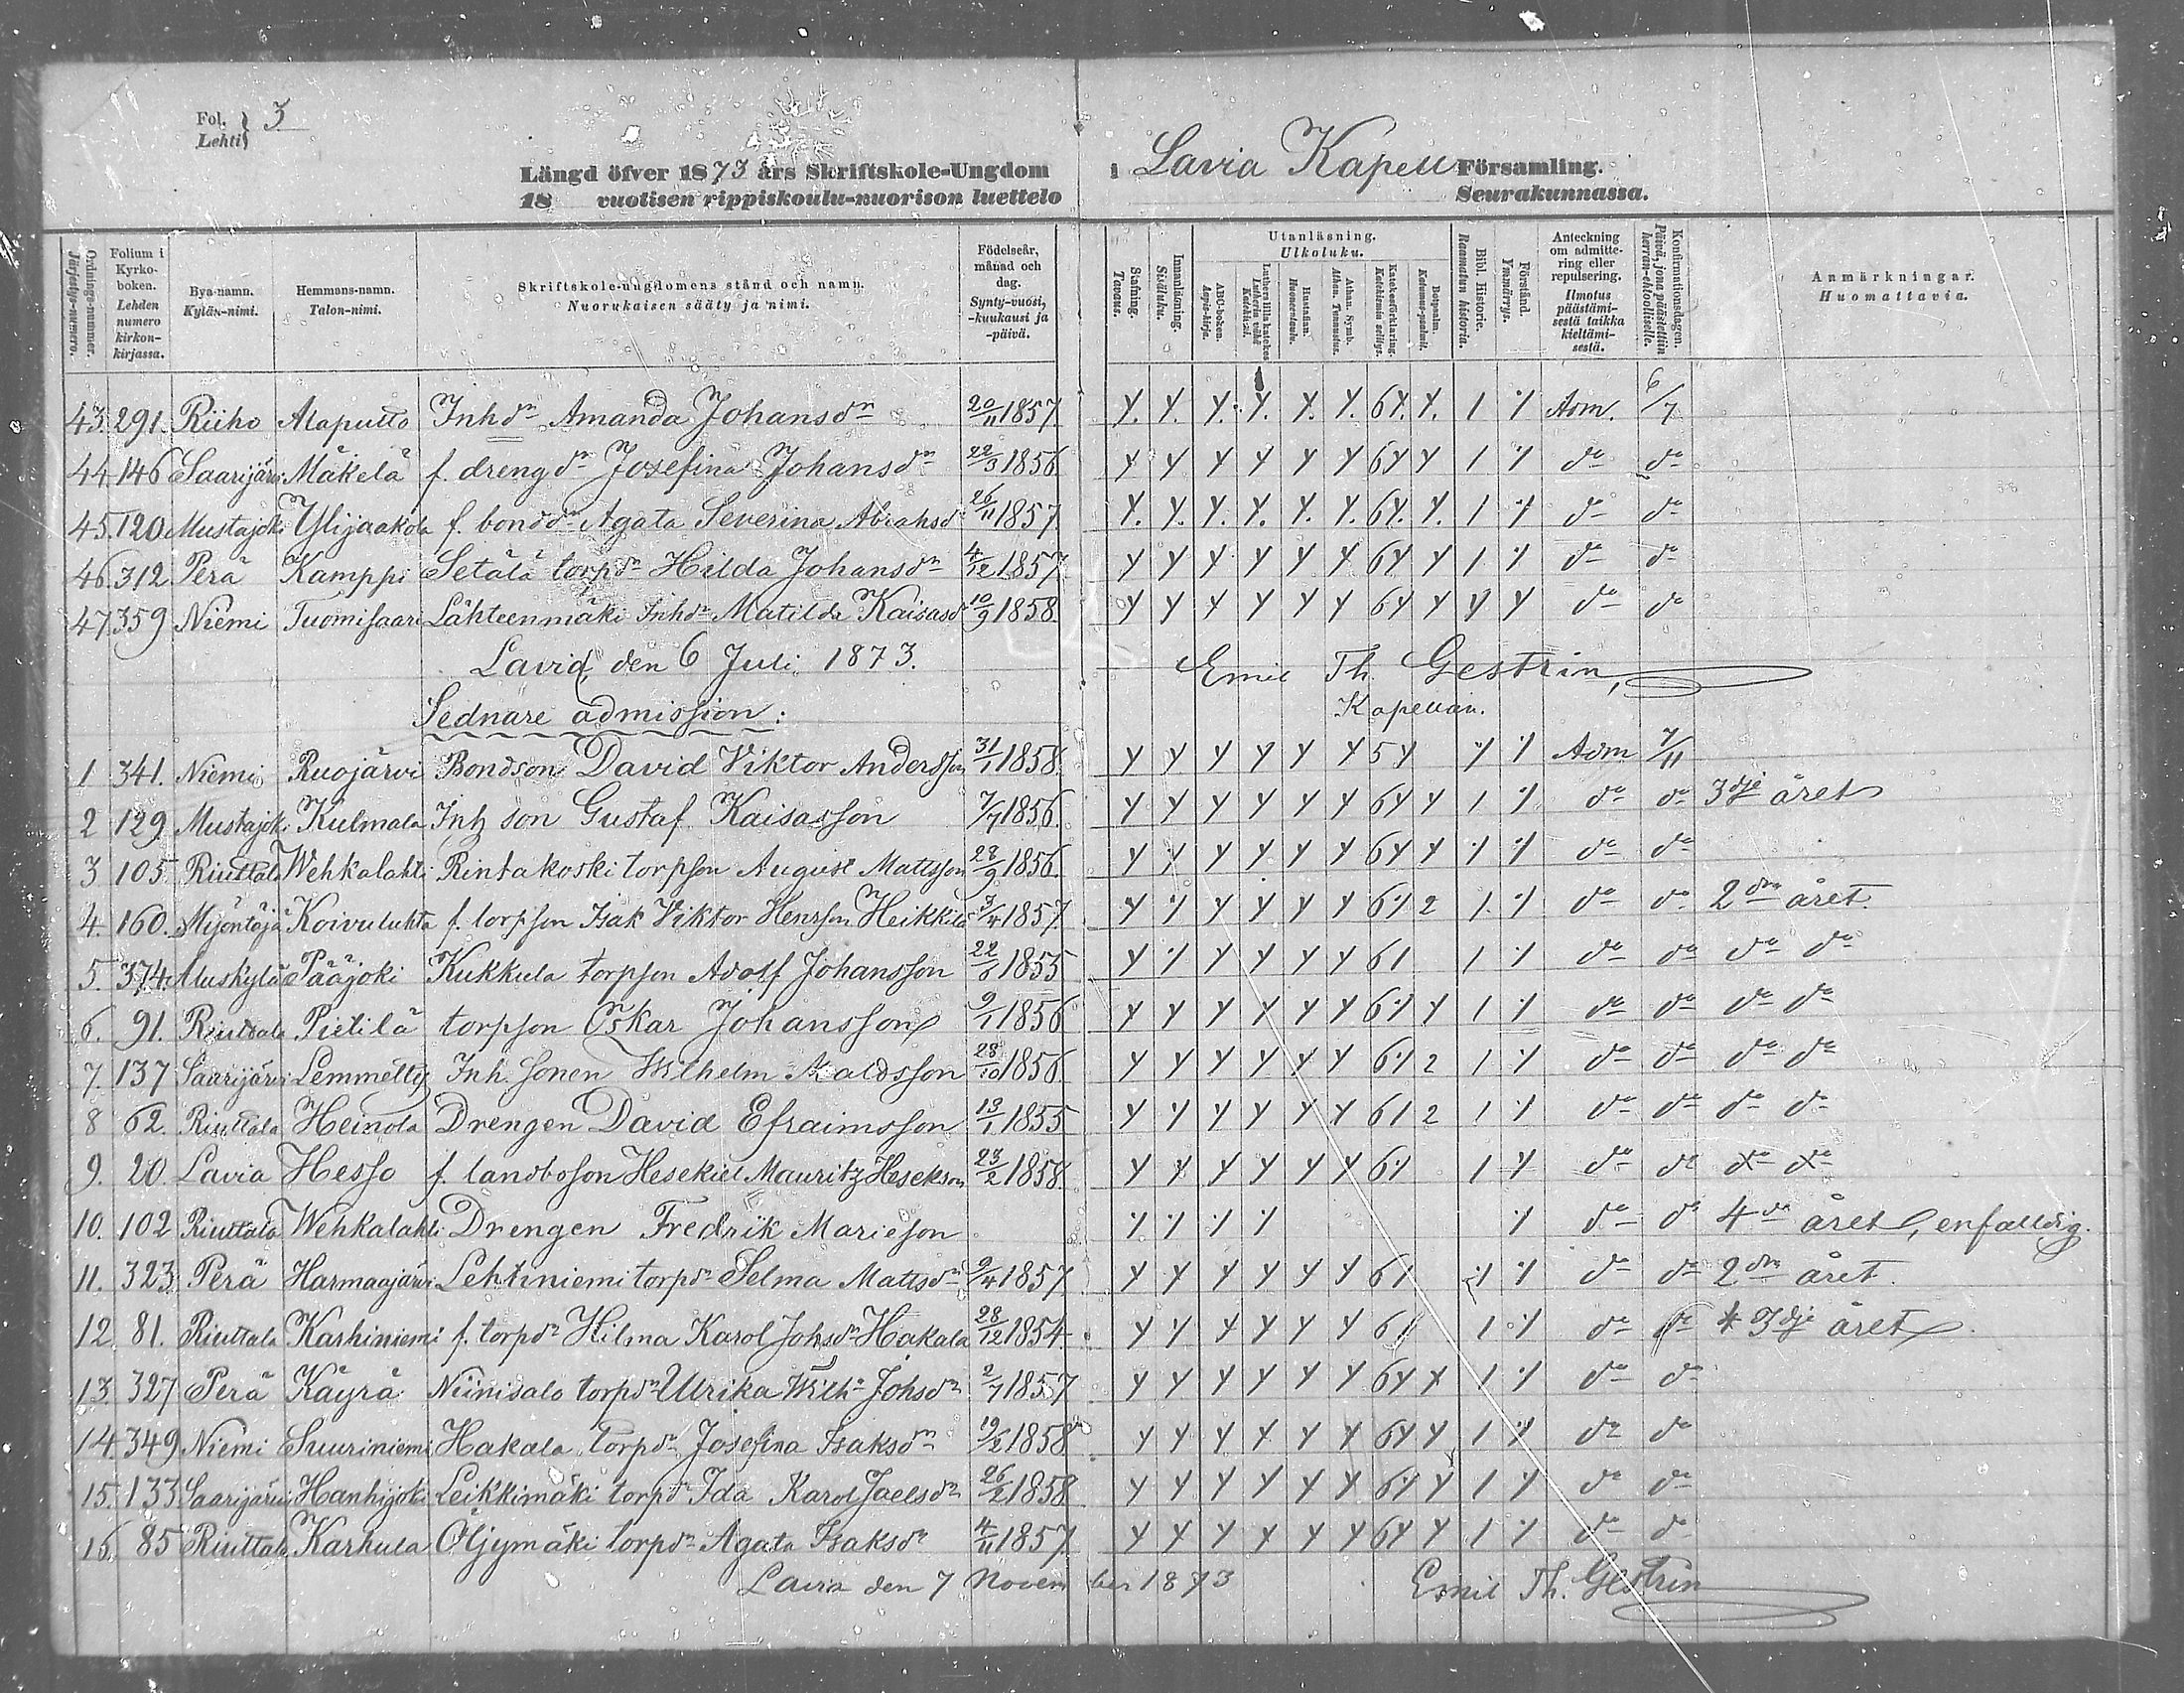 Fol. } 3
Lehti
Längd öfver 1873 års Skriftskole-Ungdom i Lavia Kapell Församling.
18 vuotisen rippiskoulu-nuorison luettelo Seurakunnassa.
Ordnings-nummer. Järjestys-numero.
Folium i Kyrko-boken. Lehden numero kirkon-kirjassa.
Bya-namn. Kylän-nimi.
Hemmans-namn. Talon-nimi.
Skriftskole-ungdomens stånd och namn. Nuorukaisen sääty ja nimi.
Födelseår, månad och dag. Synty-vuosi, -kuukausi ja -päivä.
Stafning. Tavaus.
Innanläsning. Sisäluku.
Utanläsning. Ulkoluku.
ABC-boken. Aapis-kirja.
Lutheri lilla katekes Lutherin vähä Katekismi.
Hustaflan. Huoneentaulu.
Athan. Symb. Athan. Tunnustus.
Katekesförklaring. Katekismin selitys.
Botpsalm. Katumus-psalmit.
Bibl. Historie. Raamatun historia.
Förstånd. Ymmärrys.
Anteckning om admitte-ring eller repulsering. Ilmotus päästämi-sestä taikka kieltämi-sestä.
Konfirmationsdagen. Päivä, jona päästettiin herran-ehtoolliselle.
Anmärkningar. Huomattavia.
43. 291. Riiho Alaputto Inhdr Amanda Johansdr 20/11 1857. Y. Y. Y. Y. Y. Y. 6 Y. Y. 1 Y Adm. 6/7
44. 146 Saarijärvi Mäkelä f. drengdr Josefina Johansdr 22/3 1856 Y Y Y Y Y Y 6 Y Y 1 Y do do
45. 120. Mustajoki Ylijaakola f. bonddr Agata Severina Abrahsd 26/11 1857 Y. Y. Y. Y. Y. Y. 6 Y. Y. 1 Y do do
46. 312. Perä Kamppi Setälä torpdr Hilda Johansdr 4/12 1857 Y Y Y Y Y Y 6 Y Y 1 Y do do
47. 359 Niemi Tuomisaari Lähteenmäki Inhdr Matilda Kaisasd 10/9 1858. Y Y Y Y Y Y 6 Y Y Y Y do do
Lavia, den 6 Juli 1873. Emil Th. Gestrin,
Kapellan.
Sednare admission:
1 341. Niemi Ruojärvi Bondson David Viktor Andersson 31/1 1858. Y Y Y Y Y Y 5 Y Y Y Adm 7/11
2 129 Mustajoki Kulmala Inh son Gustaf Kaisasson 7/7 1856. Y Y Y Y Y Y 6 Y Y 1 Y do do 3dje året
3 105 Riuttala Wehkalahti Rintakoski torpson August Mattsson 29/9 1856. Y Y Y Y Y Y 6 Y Y Y Y do do
4. 160. Mijöntöjä Koivuluhta f. torpson Isak Viktor Henrson Heikkilä 3/4 1857. Y Y Y Y Y Y 6 Y 2 1. Y do do 2dra året.
5. 374. Muskylä Pääjoki Kukkula torpson Adolf Johansson 22/6 1855 Y Y Y Y Y Y 6 1 1 Y do do do do
6. 91. Riuttala Pietilä torpson Oskar Johansson 9/1 1856 Y Y Y Y Y Y 6 Y Y 1 Y do do do do
7. 137 Saarijärvi Lemmetty Inh. sonen Wilhelm Maldsson 28/10 1856. Y Y Y Y Y Y 6 Y 2 1 Y do do do do
8 62. Riuttala Heinola Drengen David Efraimsson 13/1 1855 Y Y Y Y Y Y 6 1 2 1 Y do do do do
9. 20. Lavia Hesso f. landboson Hesekiel Mauritz Hesekson 23/2 1858. Y Y Y Y Y Y 6 Y 1 Y do do do do
10. 102 Riuttala Wehkalahti Drengen Fredrik Marieson Y Y Y Y Y do do 4de året, enfalldig.
11. 323 Perä Harmaajärvi Lehtiniemi torpdr Selma Mattsdr 9/4 1857 Y Y Y Y Y Y 6 1 Y Y do do 2dra året.
12 81. Riuttala Karhiniemi f. torpdr Hilma Karol Johsdr Hakala 28/12 1854. Y Y Y Y Y Y 6 1 1 Y do do 3dje året.
13. 327 Perä Käyrä Niinisalo torpdr Ulrika Wilh. Johsdr 2/7 1857 Y Y Y Y Y Y 6 Y Y 1 Y do do
14. 349 Niemi Suuriniemi Hakala torpdr Josefina Isaksdr 19/2 1858 Y Y Y Y Y Y 6 Y Y 1 Y do do
15. 133 Saarijärvi Hanhijoki Leikkimäki torpdr Ida Karol Jaelsdr 26/2 1858 Y Y Y Y Y Y 6 Y Y 1 Y do do
16. 85 Riuttala Karhula Öljymäki torpdr Agata Isaksdr 4/11 1857. Y Y Y Y Y Y 6 Y Y 1 Y do do
Lavia den 7 November 1873 Emil Th. Gestrin